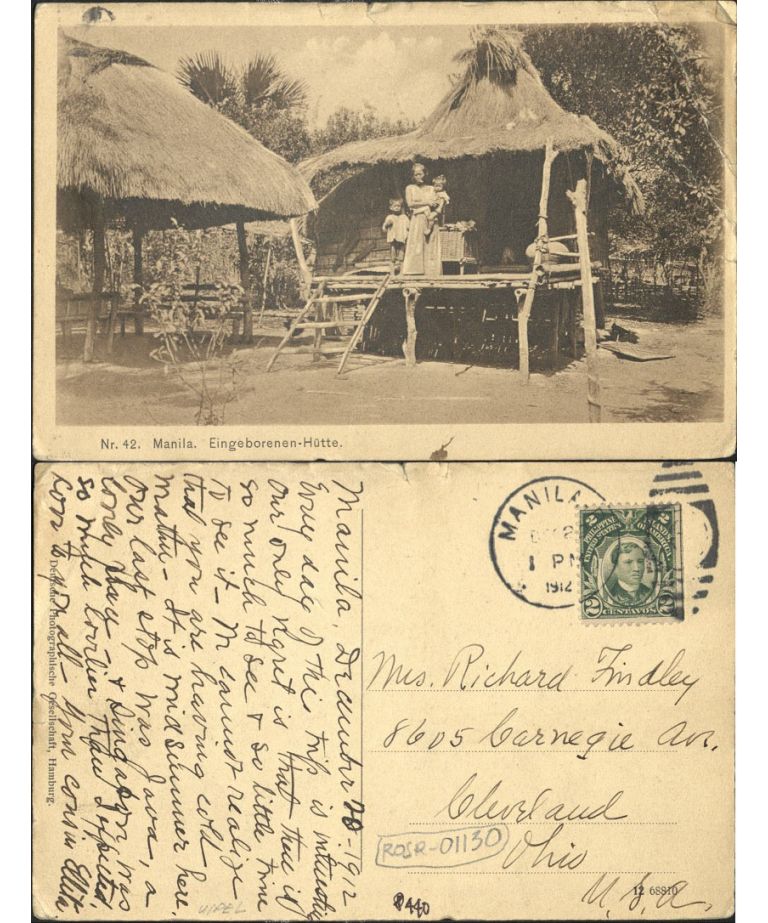 Nr. 42. Manila. Eingeborenen-Hütte.
Manila, December 20-1912
Every day of this trip is interesting
Our only regret is that there is
so much to see & so little time
to see it - We cannot realize
that you are having cold
weather - It is midsummer here.
Our last stop was Java, a
lovely place & Singapore was
so much lovelier than I expected.
Love to you all - Your cousin Ellita
Deutsche Photographische Gesellschaft, Hamburg.
MANILA
DEC 2
1 PM
1912
2 2
PHILIPPINE ISLANDS
UNITED STATES OF AMERICA
2 CENTAVOS 2
Mrs. Richard Findley
8605 Carnegie Ave.
Cleveland
Ohio
U.S.A.
ROSR-01130
12 68810
8440